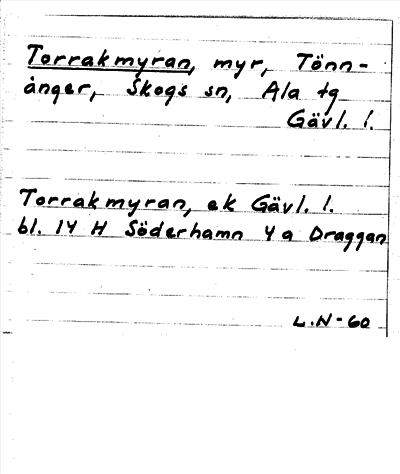 Torrakmyran, myr, Tönn-
ånger, Skogs sn, Ala tg
Gävl. l.
Torrakmyran, ek Gävl. l.
bl. 14 H Söderhamn 4 a Draggan
L.N-60